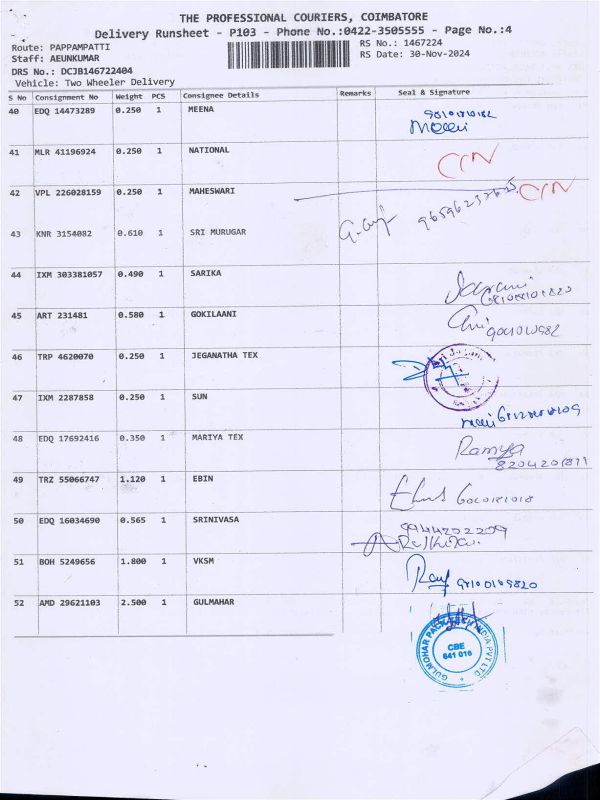 THE PROFESSIONAL COURIERS, COIMBATORE
Delivery Runsheet - P103 - Phone No.:0422-3505555 - Page No.:4
Route: PAPPAMPATTI
RS No.: 1467224
Staff: AEUNKUMAR
RS Date: 30-Nov-2024
DRS No.: DCJB146722404
Vehicle: Two Wheeler Delivery
S No Consignment No Weight PCS Consignee Details Remarks Seal & Signature
40 EDQ 14473289 0.250 1 MEENA
41 MLR 41196924 0.250 1 NATIONAL
42 VPL 226028159 0.250 1 MAHESWARI
43 KNR 3154082 0.610 1 SRI MURUGAR
44 IXM 303381057 0.490 1 SARIKA
45 ART 231481 0.580 1 GOKILAANI
46 TRP 4620070 0.250 1 JEGANATHA TEX
47 IXM 2287858 0.250 1 SUN
48 EDQ 17692416 0.350 1 MARIYA TEX
Ramya
49 TRZ 55066747 1.120 1 EBIN
50 EDQ 16034690 0.565 1 SRINIVASA
9944202209
51 BOH 5249656 1.800 1 VKSM
52 AMD 29621103 2.500 1 GULMAHAR
CBE
641 016